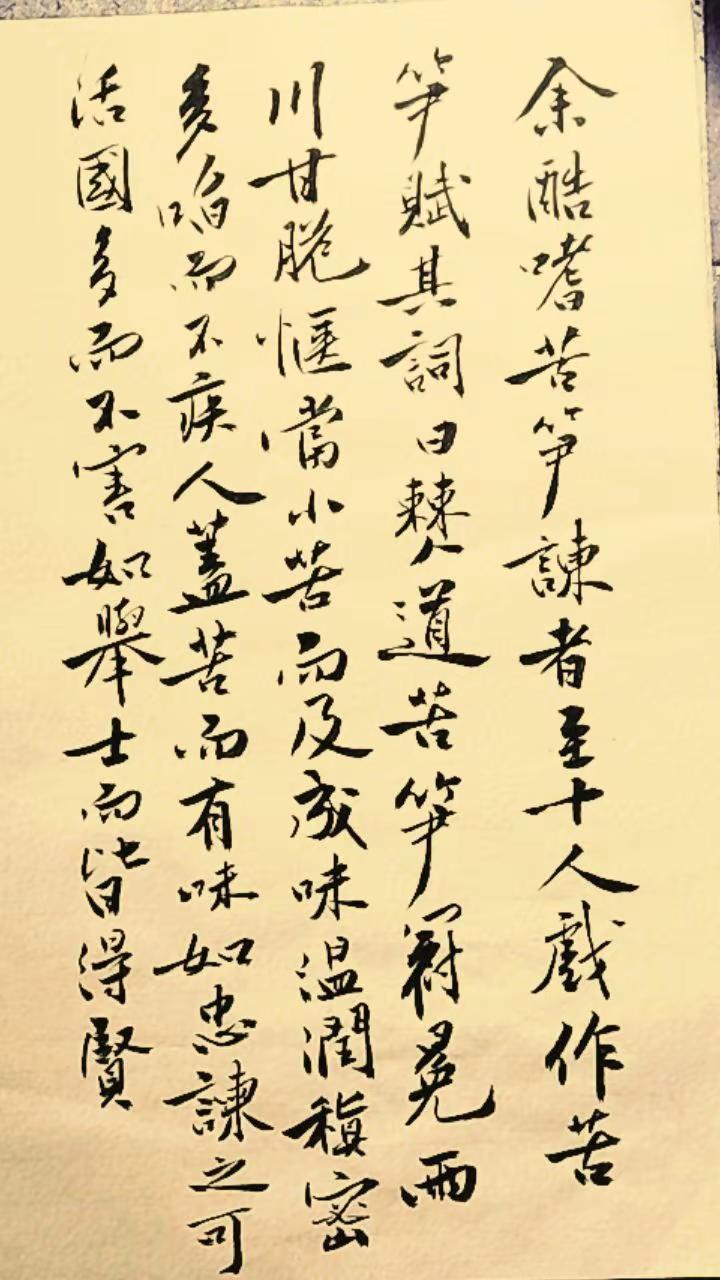 余酷嗜苦笋諫者至十人戲作苦
笋賦其詞曰僰道苦笋冠冕兩
川甘脆愜當小苦而及成味温潤稹密
多啗而不疾人蓋苦而有味如忠諫之可
活國多而不害如舉士而皆得賢